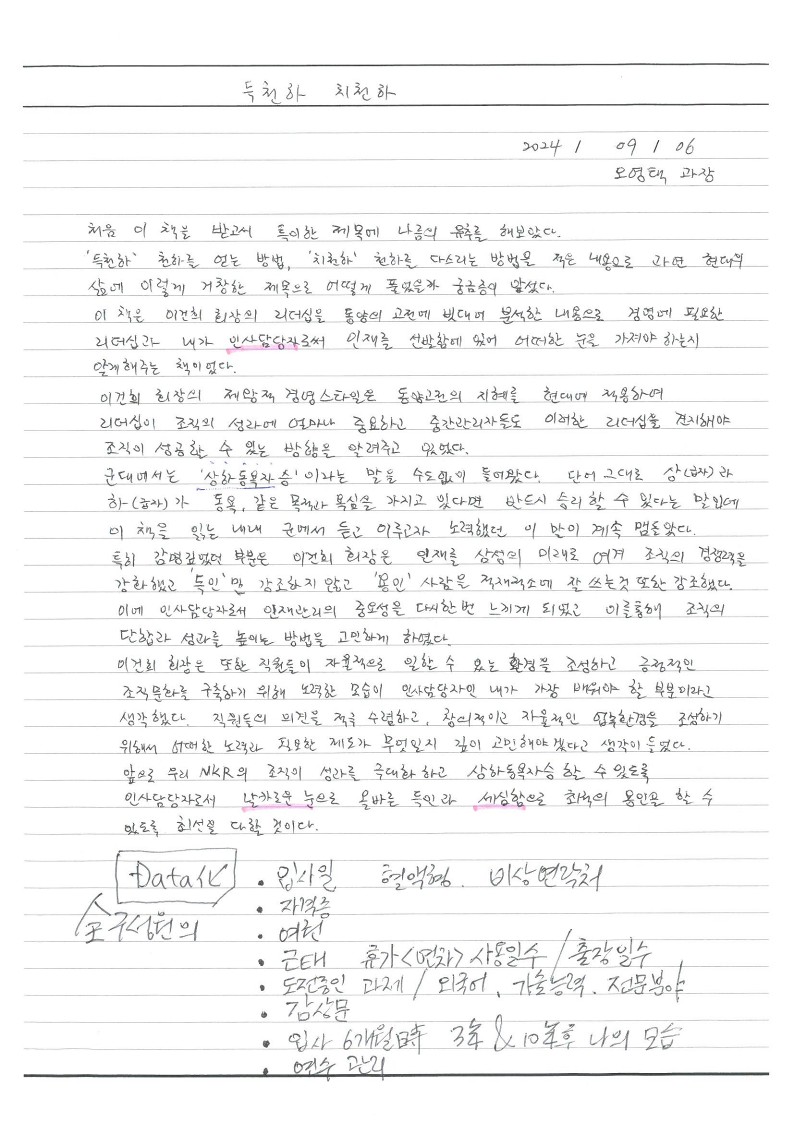 득천하 치천하
2024 / 09 / 06
오영택 과장
처음 이 책을 받고서 특이한 제목에 나름의 유추를 해보았다.
'득천하' 천하를 얻는 방법, '치천하' 천하를 다스리는 방법을 적은 내용으로 과연 현대의
삶에 이렇게 거창한 제목으로 어떻게 풀었을까 궁금증이 앞섰다.
이 책은 이건희 회장의 리더십을 동양의 고전에 빗대어 분석한 내용으로 경영에 필요한
리더십과 내가 인사담당자로써 인재를 선발함에 있어 어떠한 눈을 가져야 하는지
알게해주는 책이었다.
이건희 회장의 제왕적 경영스타일은 동양고전의 지혜를 현대에 적용하여
리더십이 조직의 성과에 얼마나 중요하고 중간관리자들도 이러한 리더십을 견지해야
조직이 성공할 수 있는 방향을 알려주고 있었다.
군대에서는 '상하동욕자 승' 이라는 말을 수도없이 들어왔다. 단어 그대로 상(上자)과
하(下자)가 동욕, 같은 목적과 욕심을 가지고 있다면 반드시 승리할 수 있다는 말인데
이 책을 읽는 내내 군에서 듣고 이루고자 노력했던 이 말이 계속 맴돌았다.
특히 감명깊었던 부분은 이건희 회장은 인재를 삼성의 미래로 여겨 조직의 경쟁력을
강화했고 '득인'만 강조하지 않고 '용인' 사람을 적재적소에 잘 쓰는것 또한 강조했다.
이에 인사담당자로서 인재관리의 중요성을 다시한번 느끼게 되었고 이를통해 조직의
단합과 성과를 높이는 방법을 고민하게 하였다.
이건희 회장은 또한 직원들이 자율적으로 일할 수 있는 환경을 조성하고 긍정적인
조직문화를 구축하기 위해 노력한 모습이 인사담당자인 내가 가장 배워야 할 부분이라고
생각했다. 직원들의 의견을 적극 수렴하고, 창의적이고 자율적인 업무환경을 조성하기
위해서 어떠한 노력과 필요한 제도가 무엇일지 깊이 고민해야겠다고 생각이 들었다.
앞으로 우리 NKR의 조직이 성과를 극대화 하고 상하동욕자승 할 수 있도록
인사담당자로서 날카로운 눈으로 올바른 득인과 세심함으로 최적의 용인을 할 수
있도록 최선을 다할 것이다.
Data化 • 입사일 혈액형. 비상연락처
• 자격증
全구성원의 • 여권
• 근태 휴가<연차> 사용일수 / 출장일수
• 도전중인 과제 / 외국어. 기술능력. 전문분야
• 감상문
• 입사 6개월時 3年 & 10年후 나의 모습
• 연수 관리